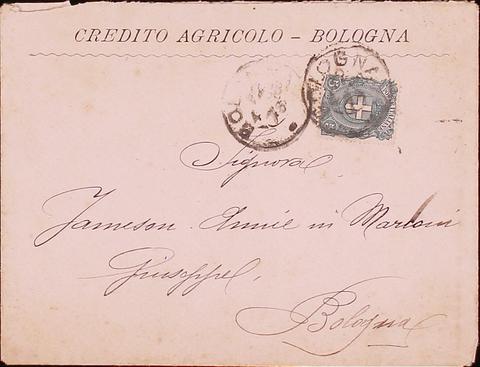 CREDITO AGRICOLO - BOLOGNA
BOLOGNA
Signora
Jameson Annie in Marconi
Giuseppe,
Bologna